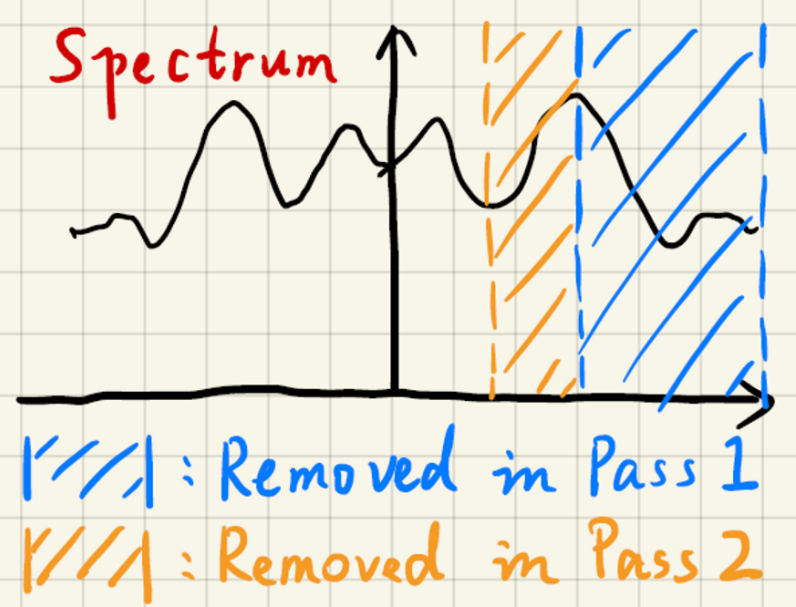 Spectrum
: Removed in Pass 1
: Removed in Pass 2